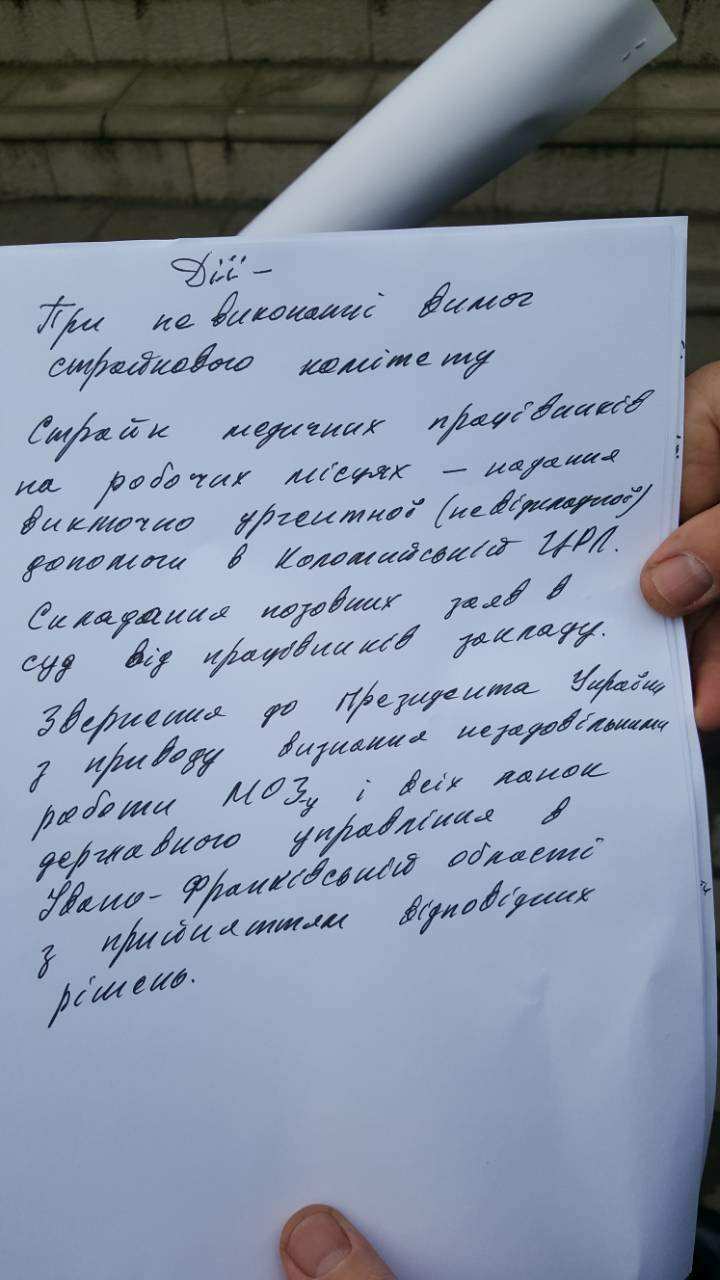 Дії –
При не виконанні вимог
страйкового комітету
Страйк медичних працівників
на робочих місцях – надання
виключно ургентної (невідкладної)
допомоги в Коломийській ЦРЛ.
Складання позовних заяв в
суд від працівників закладу.
Звернення до Президента України
з приводу визнання незадовільними
роботи МОЗу і всіх ланок
державного управління в
Івано-Франківській області
з прийняттям відповідних
рішень.